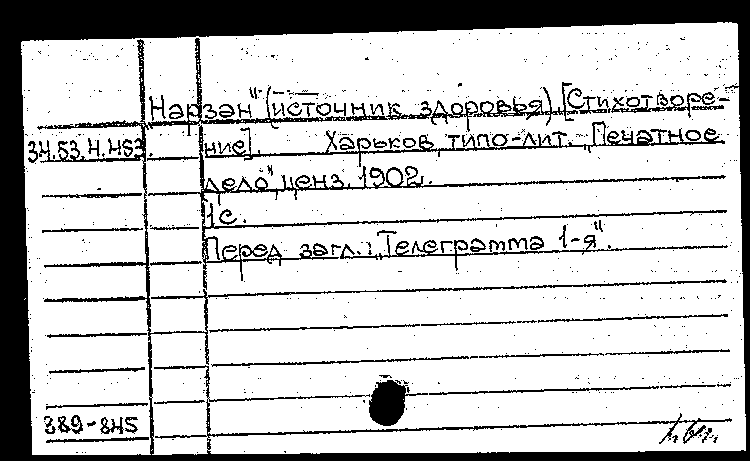 Нарзан" (источник здоровья) [Стихотворе-
34.53.4.463. ние]. Харьков, типо-лит. „Печатное
дело", ценз. 1902.
1 с.
Перед загл.: „Телеграмма 1-я".
389-845